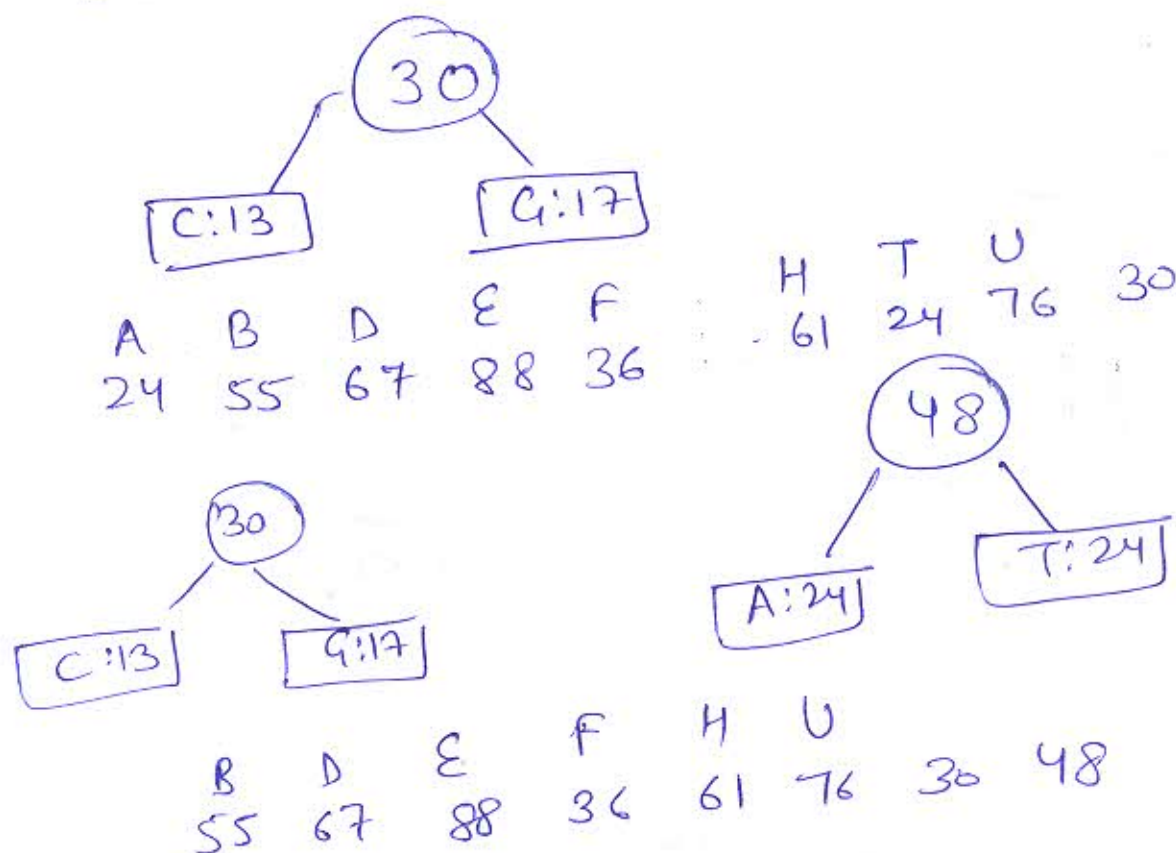 30
C:13 G:17
A B D E F H T U
24 55 67 88 36 61 24 76 30
48
30
A:24 T:24
C:13 G:17
B D E F H U
55 67 88 36 61 76 30 48